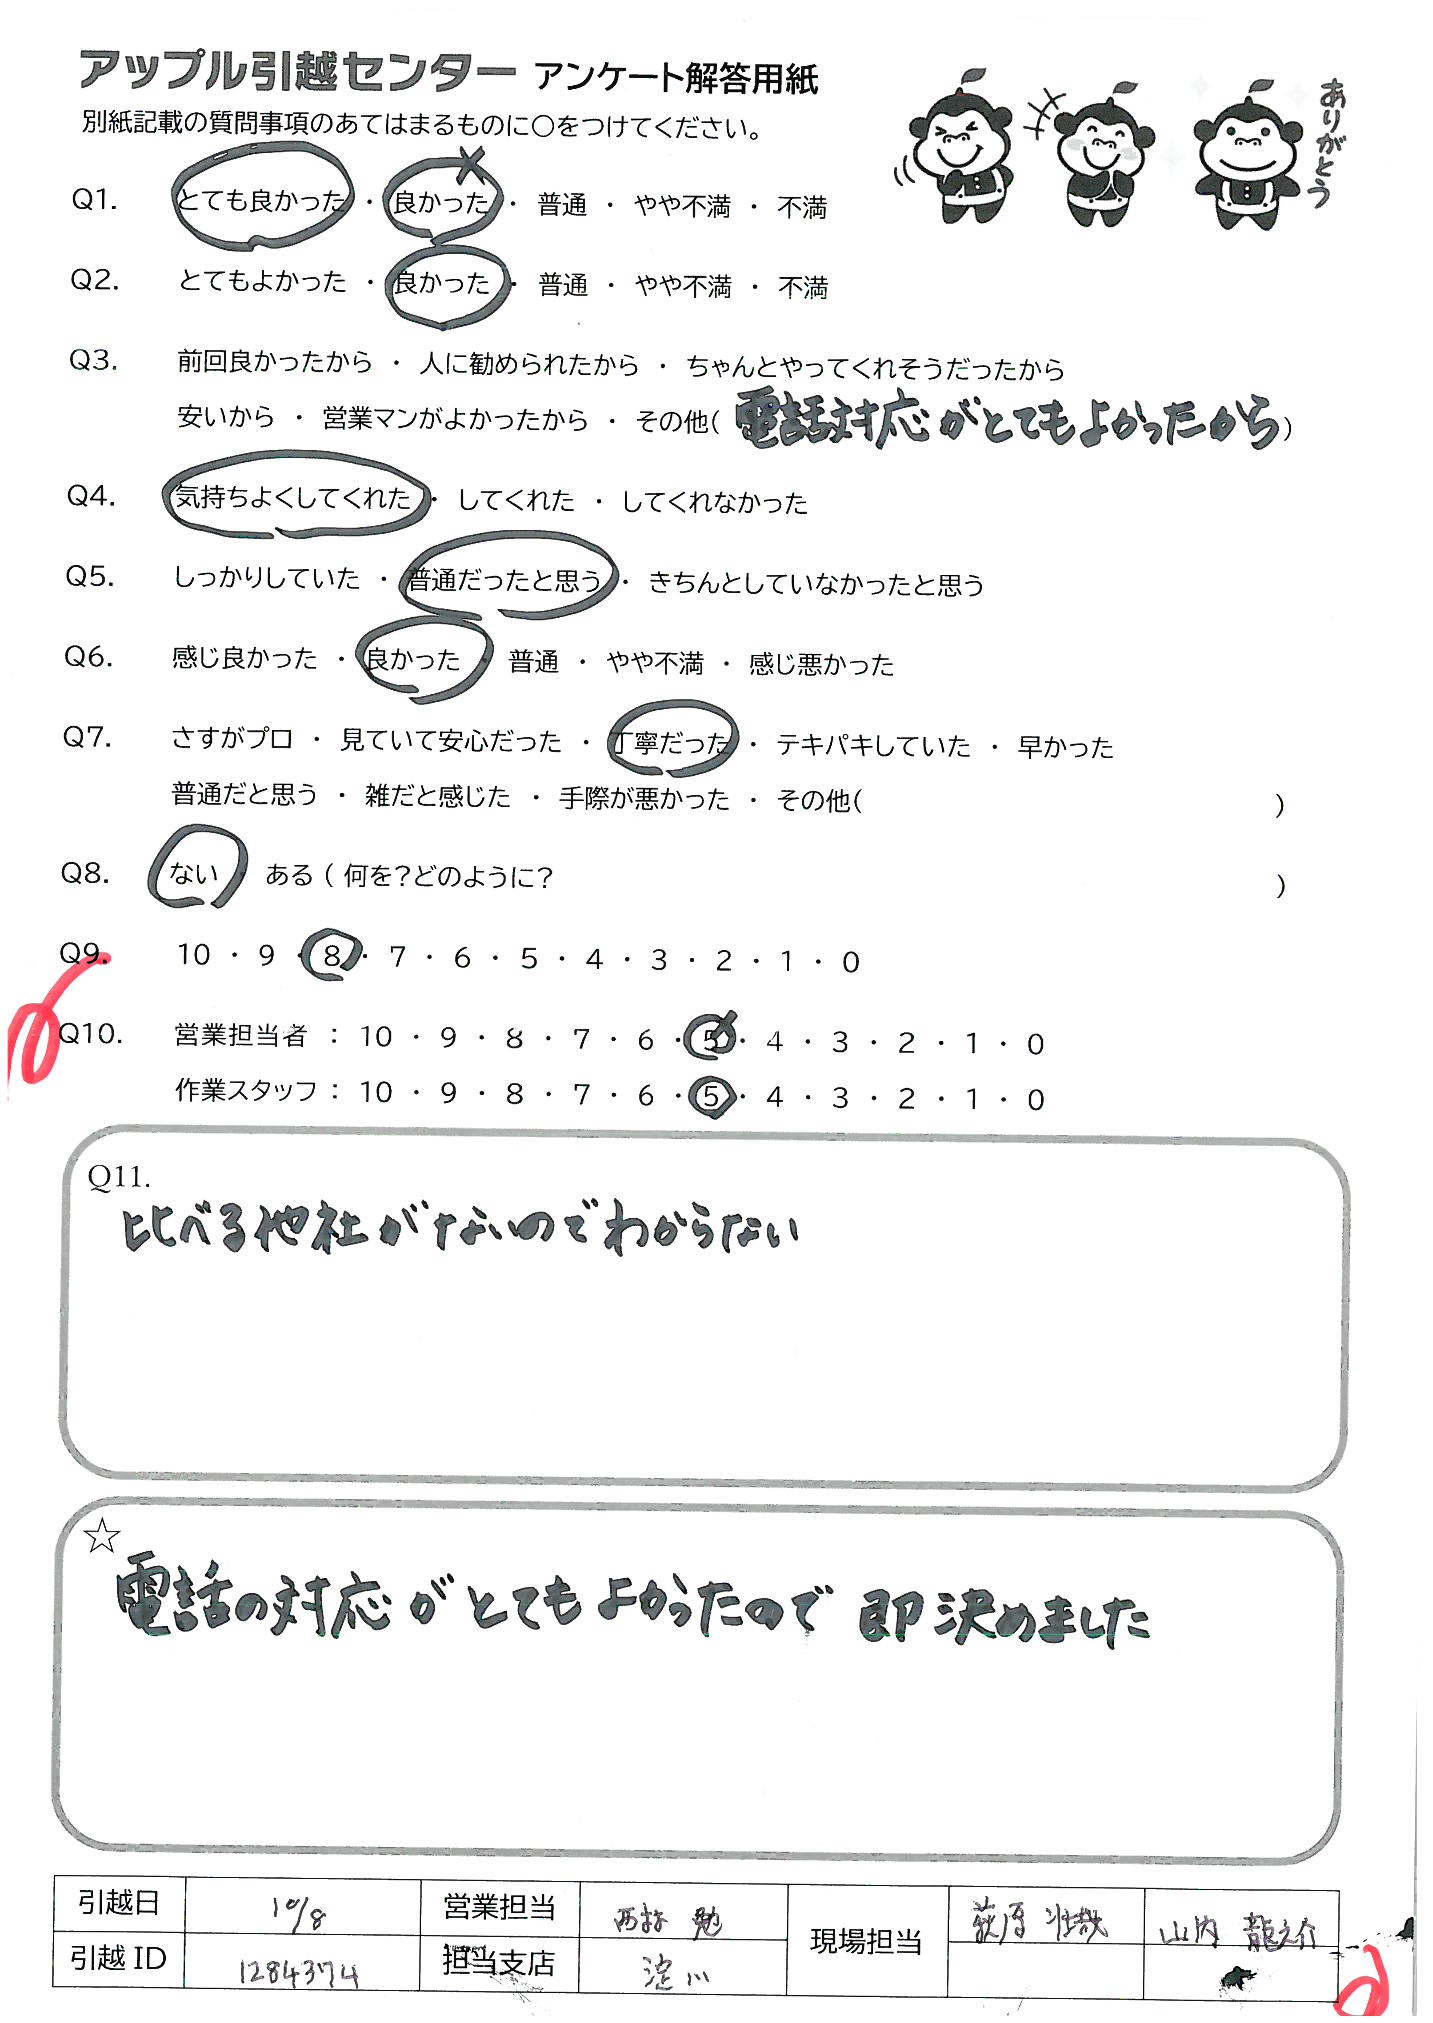 アップル引越センター アンケート解答用紙
別紙記載の質問事項のあてはまるものに○をつけてください。
ありがとう
Q1. とても良かった ・ 良かった ・ 普通 ・ やや不満 ・ 不満
Q2. とてもよかった ・ 良かった ・ 普通 ・ やや不満 ・ 不満
Q3. 前回良かったから ・ 人に勧められたから ・ ちゃんとやってくれそうだったから
安いから ・ 営業マンがよかったから ・ その他( 電話対応がとてもよかったから )
Q4. 気持ちよくしてくれた ・ してくれた ・ してくれなかった
Q5. しっかりしていた ・ 普通だったと思う ・ きちんとしていなかったと思う
Q6. 感じ良かった ・ 良かった ・ 普通 ・ やや不満 ・ 感じ悪かった
Q7. さすがプロ ・ 見ていて安心だった ・ 丁寧だった ・ テキパキしていた ・ 早かった
普通だと思う ・ 雑だと感じた ・ 手際が悪かった ・ その他( )
Q8. ない ・ ある ( 何を?どのように? )
Q9. 10 ・ 9 ・ 8 ・ 7 ・ 6 ・ 5 ・ 4 ・ 3 ・ 2 ・ 1 ・ 0
Q10. 営業担当者 : 10 ・ 9 ・ 8 ・ 7 ・ 6 ・ 5 ・ 4 ・ 3 ・ 2 ・ 1 ・ 0
作業スタッフ : 10 ・ 9 ・ 8 ・ 7 ・ 6 ・ 5 ・ 4 ・ 3 ・ 2 ・ 1 ・ 0
Q11.
比べる他社がないのでわからない
☆
電話の対応がとてもよかったので 即決めました
引越日 10/8 営業担当 勉 現場担当 荻原 壮哉 山内 龍之介
引越ID 1284374 担当支店 淀川